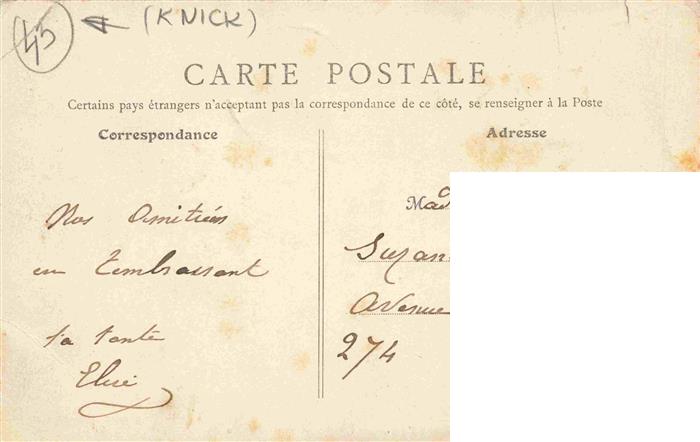 45 (KNICK)
CARTE POSTALE
Certains pays étrangers n'acceptent pas la correspondance de ce côté, se renseigner à la Poste
Correspondance
Adresse
Nos Amitiés
en t'embrassant
ta tante
Elise
Mad
Suzan
Avenue
274